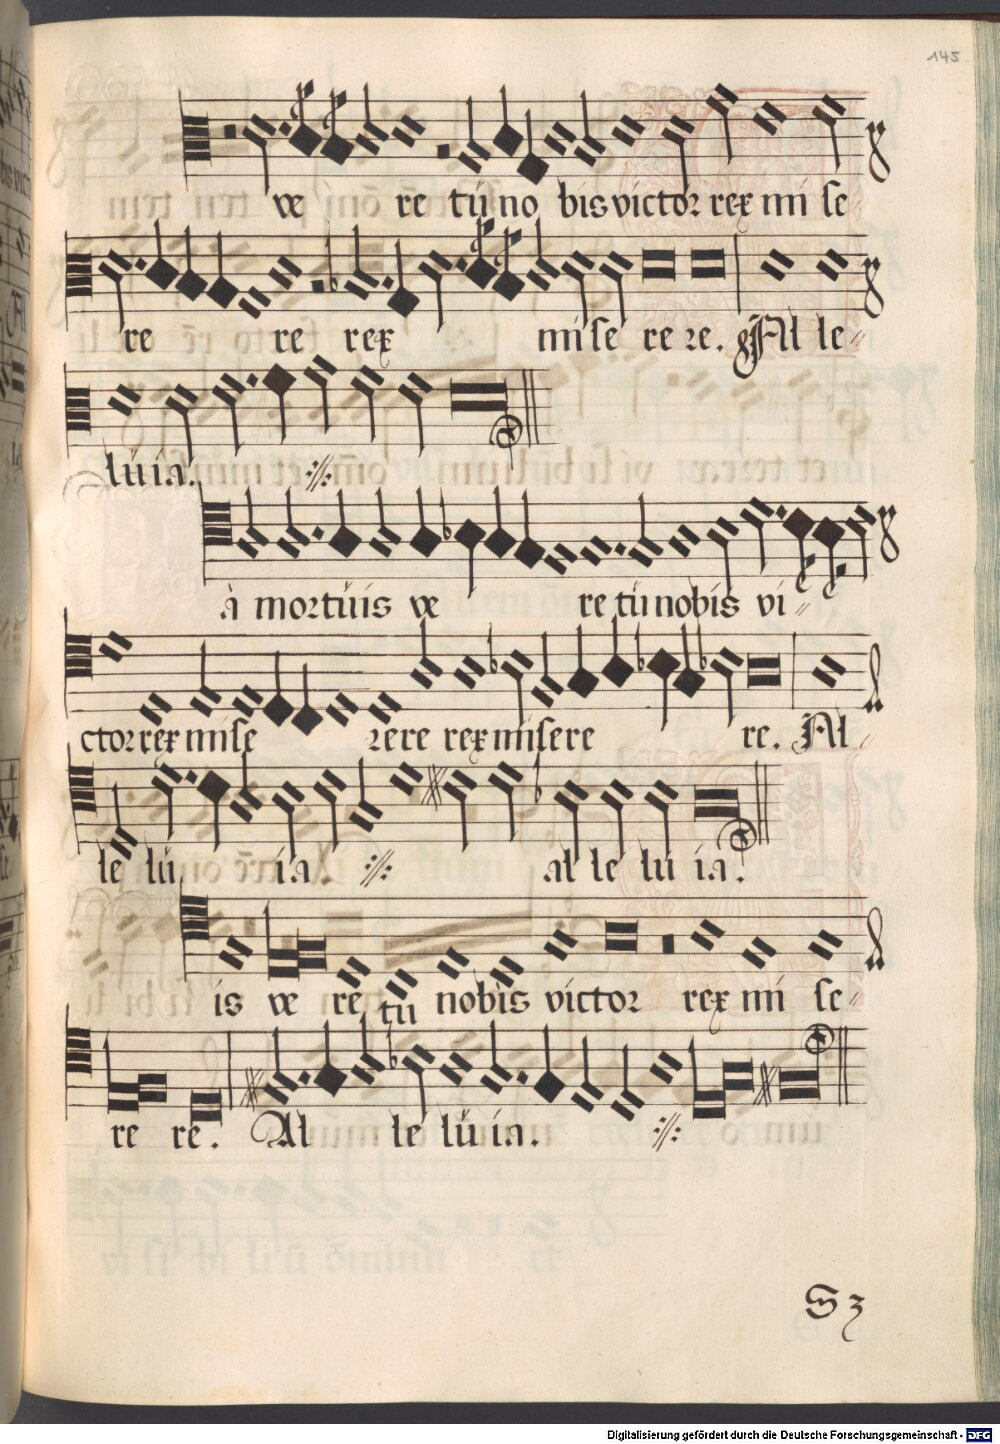 145
ve re tu no bis victor rex mi se
re re rex mi se re re. Al le
lu ia.
à mortuis ve re tu nobis vi
ctor rex mi se rere rex misere re. Al
le lu ia. al le lu ia.
is ve re tu nobis victor rex mi se
re re. Al le lu ia.
S 3
Digitalisierung gefördert durch die Deutsche Forschungsgemeinschaft - DFG